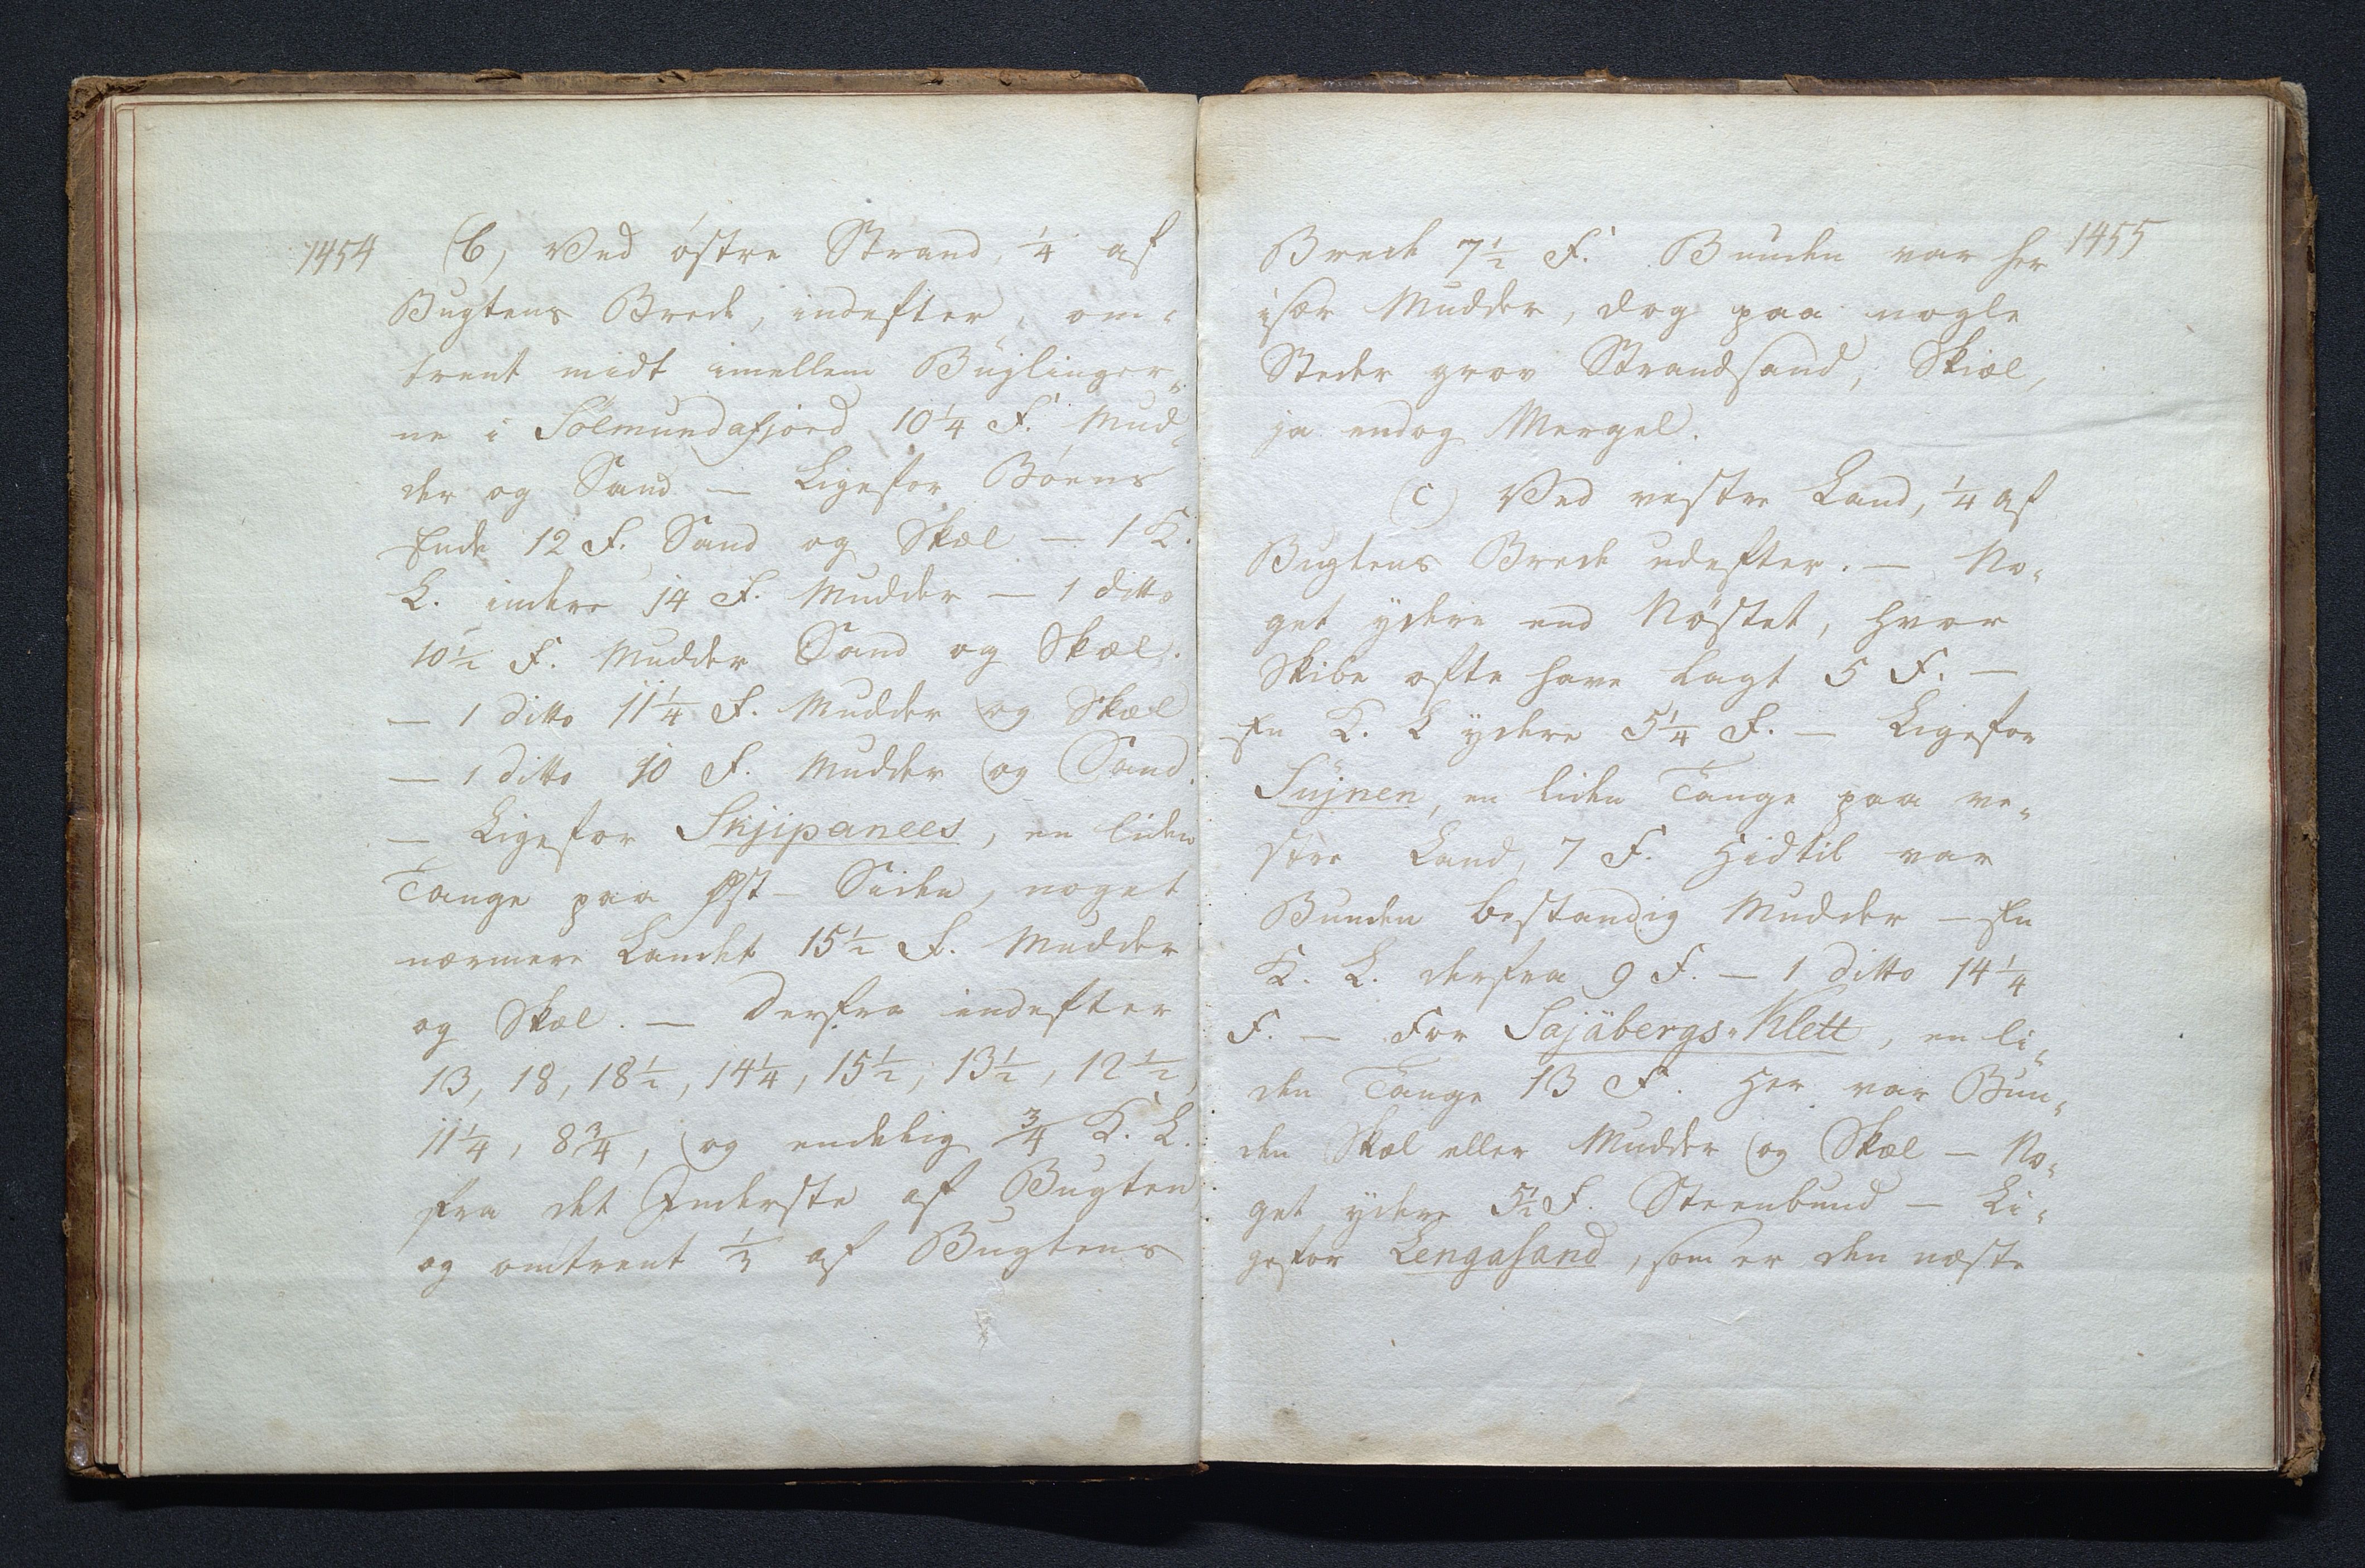 1454
(b, Ved östre Strand, 1/4 af
Bugtens Brede, indefter, om-
trent midt imellem Büglinger-
ne i Sölmundafjord 10 1/4 F. Mud-
der og Sand — Ligefor Böens
Ende 12 F. Sand og Skæl — 1 K.
L. indere 14 F. Mudder — 1 ditto
10 1/2 F. Mudder Sand og Skæl.
— 1 ditto 11 1/4 F. Mudder og Skæl
— 1 ditto 10 F. Mudder og Sand.
— Ligefor Skjipanees, en liden
Tange paa Øst-Siden, noget
nærmere Landet 15 1/2 F. Mudder
og Skæl. — Derfra indefter
13, 18, 18 1/2, 14 1/4, 15 1/2, 13 1/2, 12 1/2,
11 1/4, 8 3/4, og endelig 3/4 K. L.
fra det Inderste af Bugten
og omtrent 1/3 af Bugtens
1455
Brede 7 1/2 F. Bunden var her
især Mudder, dog paa nogle
Steder grov Strandsand, Skiæl,
ja endog Mergel.
(c) Ved vestre Land, 1/4 af
Bugtens Brede udefter. — No-
get ydere end Nöstet, hvor
Skibe ofte have lagt 5 F. —
En K. L ydere 5 1/4 F. — Ligefor
Sujnen, en liden Tange paa ve-
stre Land, 7 F. Hidtil var
Bunden bestandig Mudder — En
K. L. derfra 9 F. — 1 ditto 14 1/4
F. — For Sajäbergs-Klett, en li-
den Tange 13 F. Her var Bun-
den Skæl eller Mudder og Skæl — No-
get ydere 5 1/2 F. Steenbund — Li-
gefor Lengasand, som er den næste